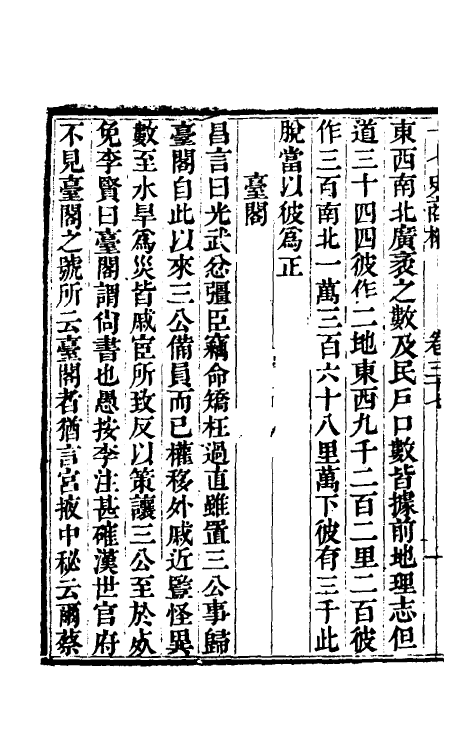 卷三十七
東西南北廣袤之數及民戶口數皆據前地理志但
道三十四四彼作二地東西九千二百二里二百彼
作三百南北一萬三百六十八里萬下彼有三千此
脫當以彼爲正
臺閣
昌言曰光武忿彊臣竊命矯枉過直雖置三公事歸
臺閣自此以來三公備員而已權移外戚近豎怪異
數至水旱爲災皆戚宦所致反以策讓三公至於死
免李賢曰臺閣謂尙書也愚按李注甚確漢世官府
不見臺閣之號所云臺閣者猶言宮掖中秘云爾蔡